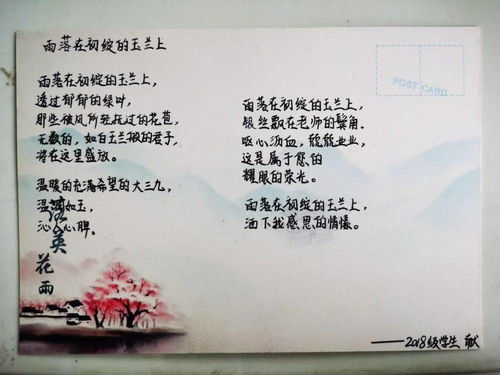 雨落在初绽的玉兰上
雨落在初绽的玉兰上，
透过郁郁的绿叶，
那些被风所轻抚过的花苞，
无数的，如白玉兰般的君子，
将在这里盛放。
温暖的充满希望的大三九，
温润如玉，
沁人心脾。
落英花雨
POST CARD
雨落在初绽的玉兰上，
银丝飘在老师的鬓角。
呕心沥血，兢兢业业，
这是属于您的
耀眼的荣光。
雨落在初绽的玉兰上，
洒下我感恩的情愫。
——2018级学生 献